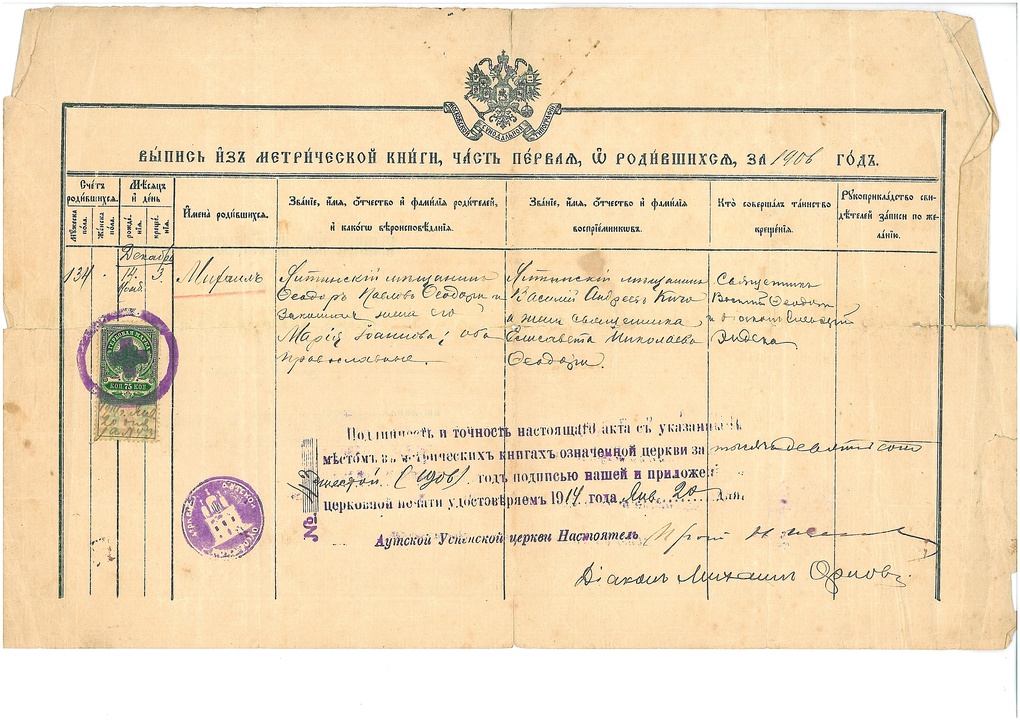 МОСКОВСКОЙ СѴНОДАЛЬНОЙ ТИПОГРАФІИ
ВЫ́ПИСЬ И҆ЗЪ МЕТРИ́ЧЕСКОЙ КНИ́ГИ, ЧА́СТЬ ПЕ́РВАЯ, Ѿ РОДИ́ВШИХСЯ, ЗА 1906 ГО́ДЪ.
Счетъ родившихся.
Мужеска пола.
Женска пола.
Мѣсяцъ и день
рожденія.
крещенія.
Имена родившихся.
Званіе, имя, отчество и фамилія родителей, и какогѡ вѣроисповѣданія.
Званіе, имя, отчество и фамилія воспріемниковъ.
Кто совершалъ таинство крещенія.
Рукоприкладство свидѣтелей записи по желанію.
Декабрь
134 - 14. Нояб. 3.
Михаилъ
Ялтинскій мѣщанинъ
Ѳеодоръ Павловъ Ѳеодори и
законная жена его
Марія Іоаннова; оба
православные.
Ялтинскій мѣщанинъ
Василій Андреевъ Кичо
и жена священника
Елисавета Николаева
Ѳеодори.
Священникъ
Ѳеодори
и діаконъ
КОП 75 КОП
Подлинность и точность настоящаго акта съ указаннымъ
мѣстомъ въ метрическихъ книгахъ означенной церкви за тысяча девятьсотъ
шестой (1906) годъ подписью нашей и приложен
церковной печати удостовѣряемъ 1914 года Янв. 20 дня.
№ 43
Аутской Успенской церкви Настоятель Прот.
Діаконъ Михаилъ Орловъ